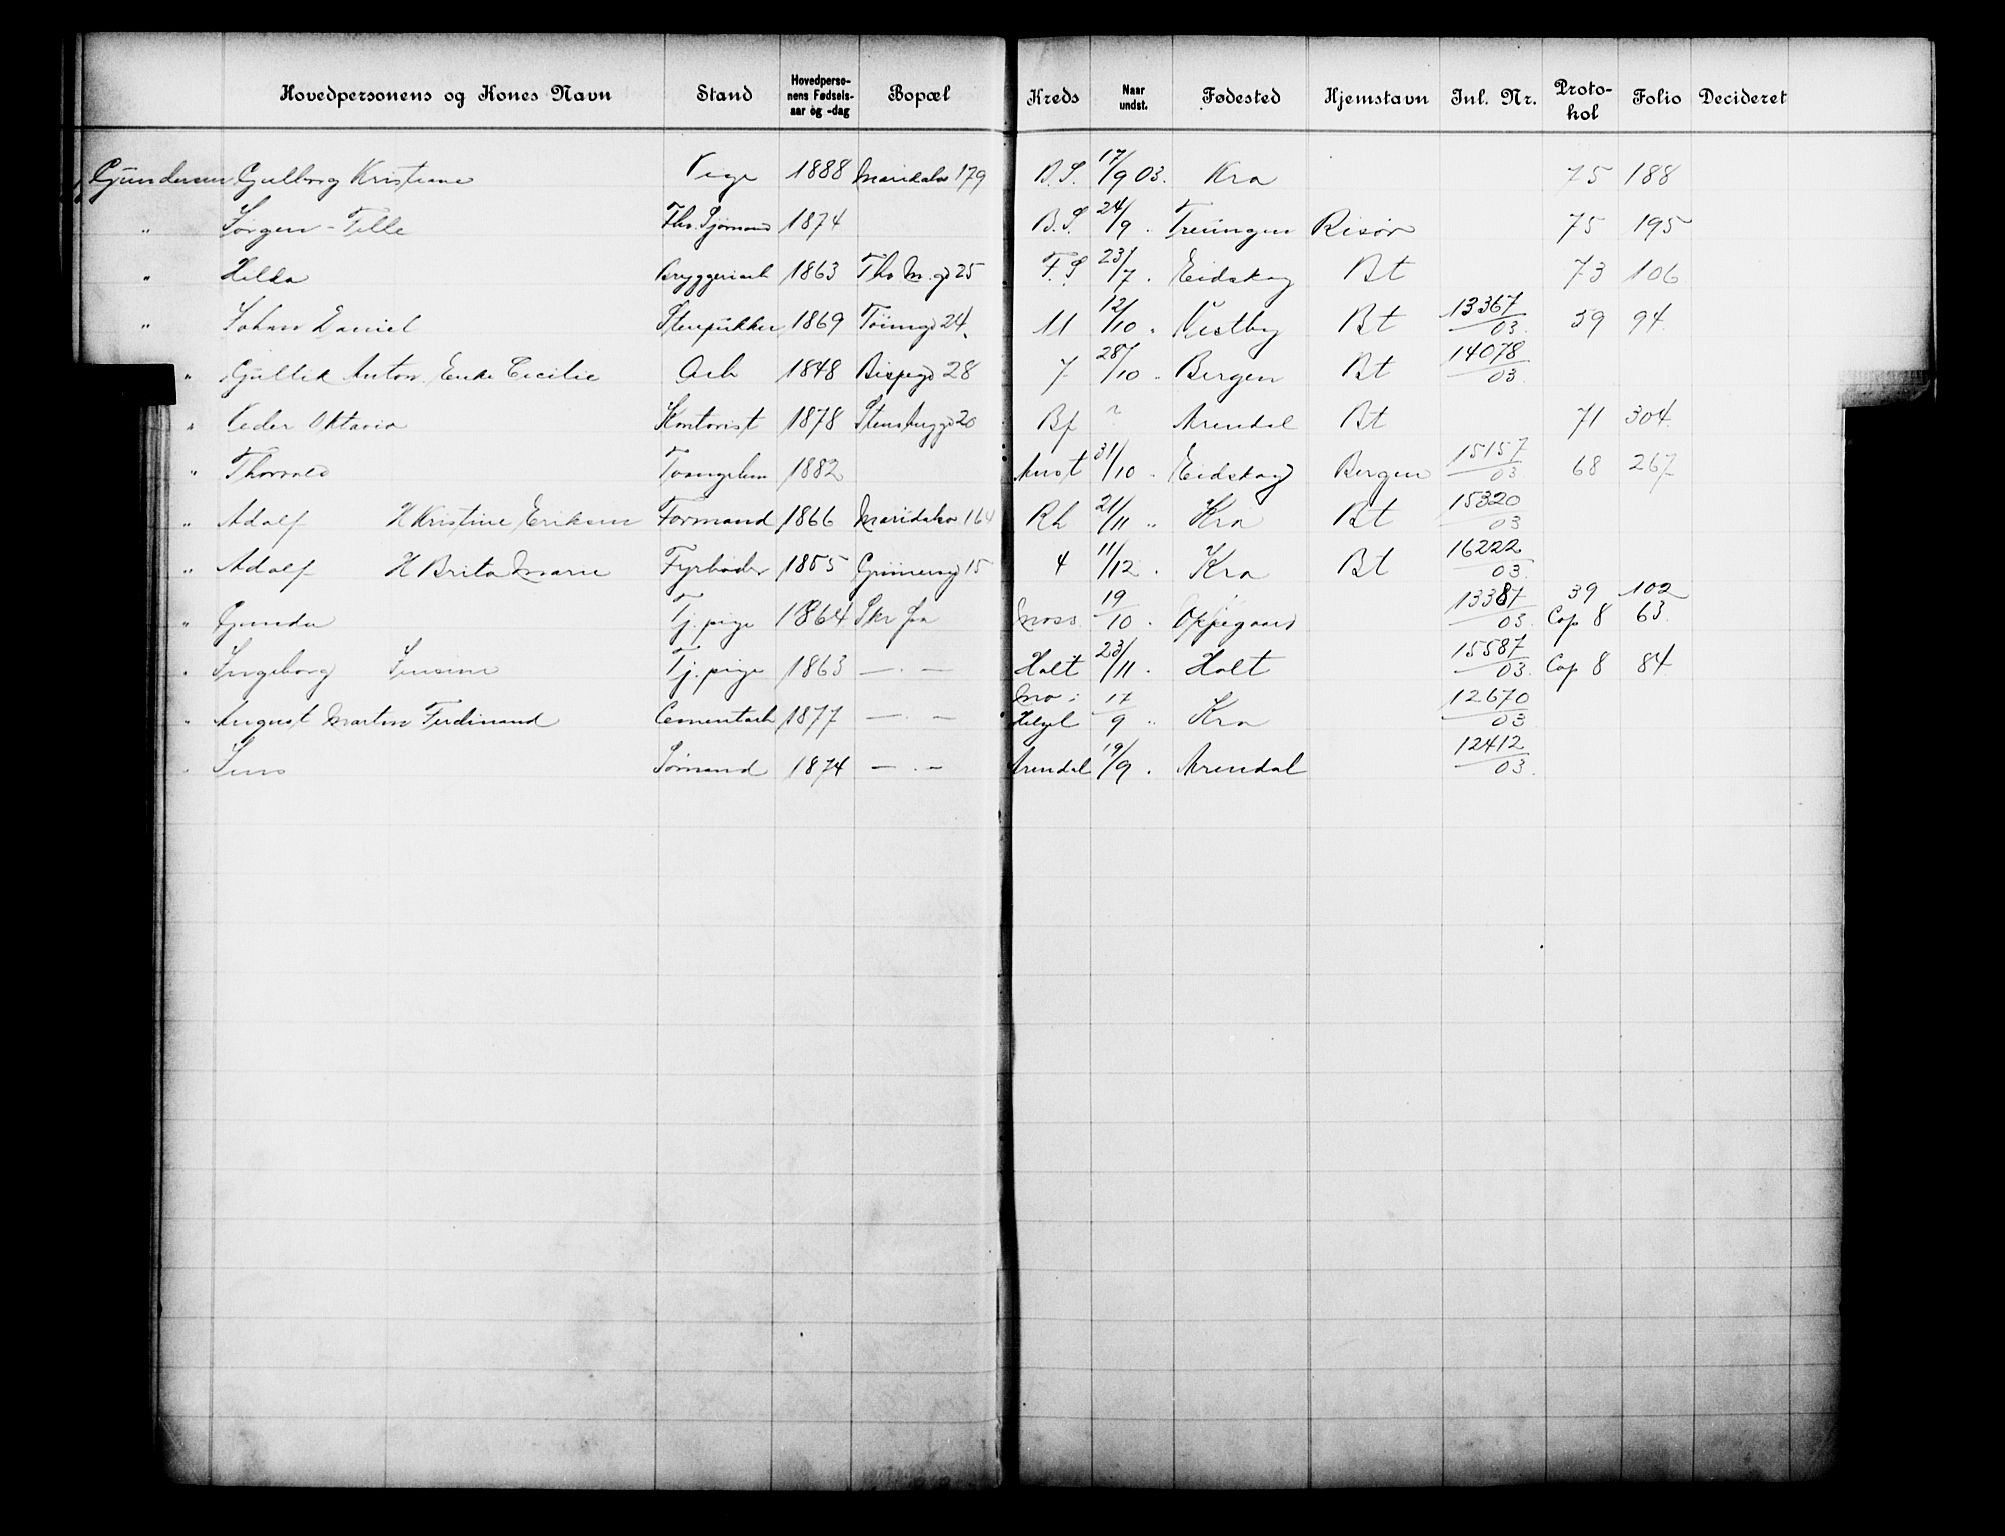 Hovedpersonens og Kones Navn Stand Hovedperso-nens Fødsels-aar og -dag Bopæl Kreds Naar undst. Fødested Hjemstavn Inl. Nr. Proto-kol Folio Decideret
Gundersen Gulborg Kristiane Pige 1888 Maridalsv 179 B.S. 17/9 03. Kra 75 188
" Jørgen - Fhv. Sjømand 1874 B.S 24/9 . Treungen Risør 75 195
" Hilda Bryggeriarb 1863 Ths M. gd 25 F.S 23/7 . Eidskog Bt 73 106
" Johan Daniel Stenpukker 1869 Tøiengd 24. 11 12/10 . Vestby Bt 13367/03. 39 94
" Gullik Anton, Enke Cecilie Arb 1848 Bispegd 28 7 28/10 " Bergen Bt 14078/03.
" Peder Oktavio Kontorist 1878 20 Bf ? Arendal Bt 71 304
" Thorvald 1882 Aust 31/10 . Eidskog Bergen 15157/03 68 267
" Adolf H Kristine Eriksen Formand 1866 Maridalsv 164 Rh 21/11 " Kra Bt 15320/03
" Adolf H Brita Marie Fyrbøder 1855 15 4 11/12 . Kra Bt 16222/03.
" Gunda Tj. pige 1864 Skr fra Moss 19/10 . Oppegaard 13387/03. 39 102
Cop 8 63.
" Ingeborg Jensine Tj. pige 1863 — . — Holt 23/11 . Holt 15587/03. Cop 8 84
" August Martin Ferdinand Cementarb 1877 — . — Mo i Helgel 17/9 " Kra 12670/03
" Jens Sømand 1874 — . — Arendal 19/9 . Arendal 12412/03.